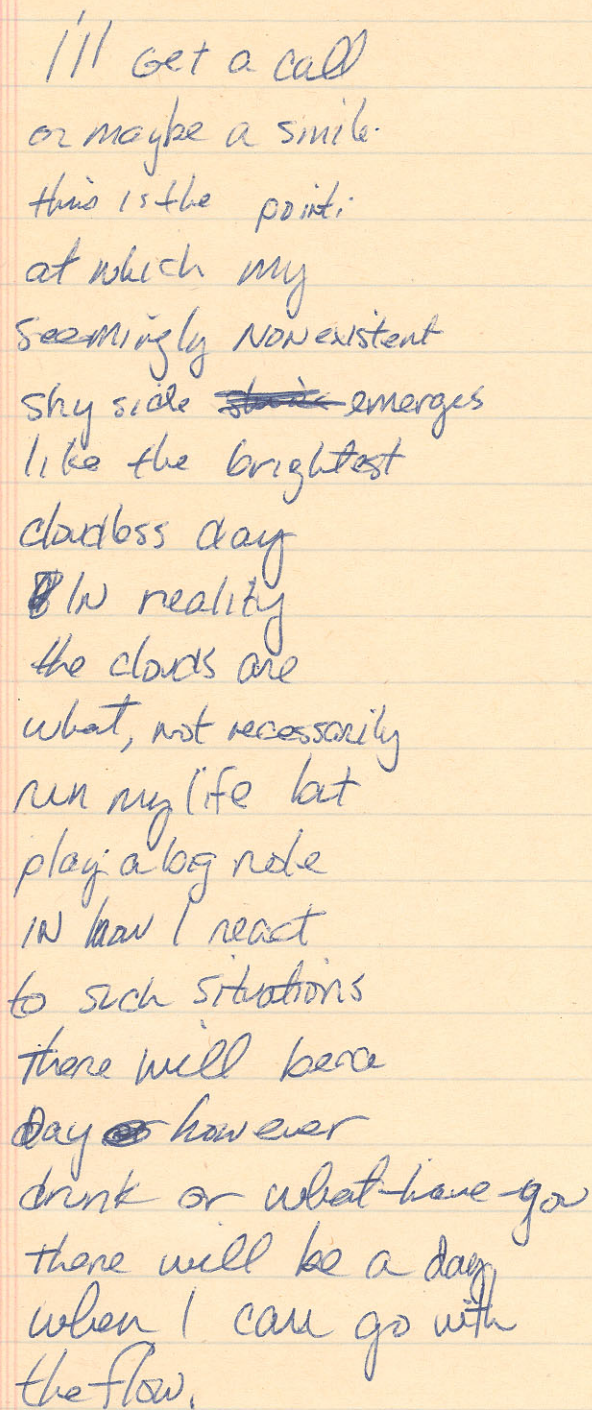 I'll Get a call
or maybe a smile.
this is the point;
at which my
seemingly NONexistent
shy side emerges
like the brightest
cloudless day
IN reality
the clouds are
what, not necessarily
run my life but
play a big role
IN how I react
to such situations
there will be a
day however
drunk or what-have-you
there will be a day
when I can go with
the flow.